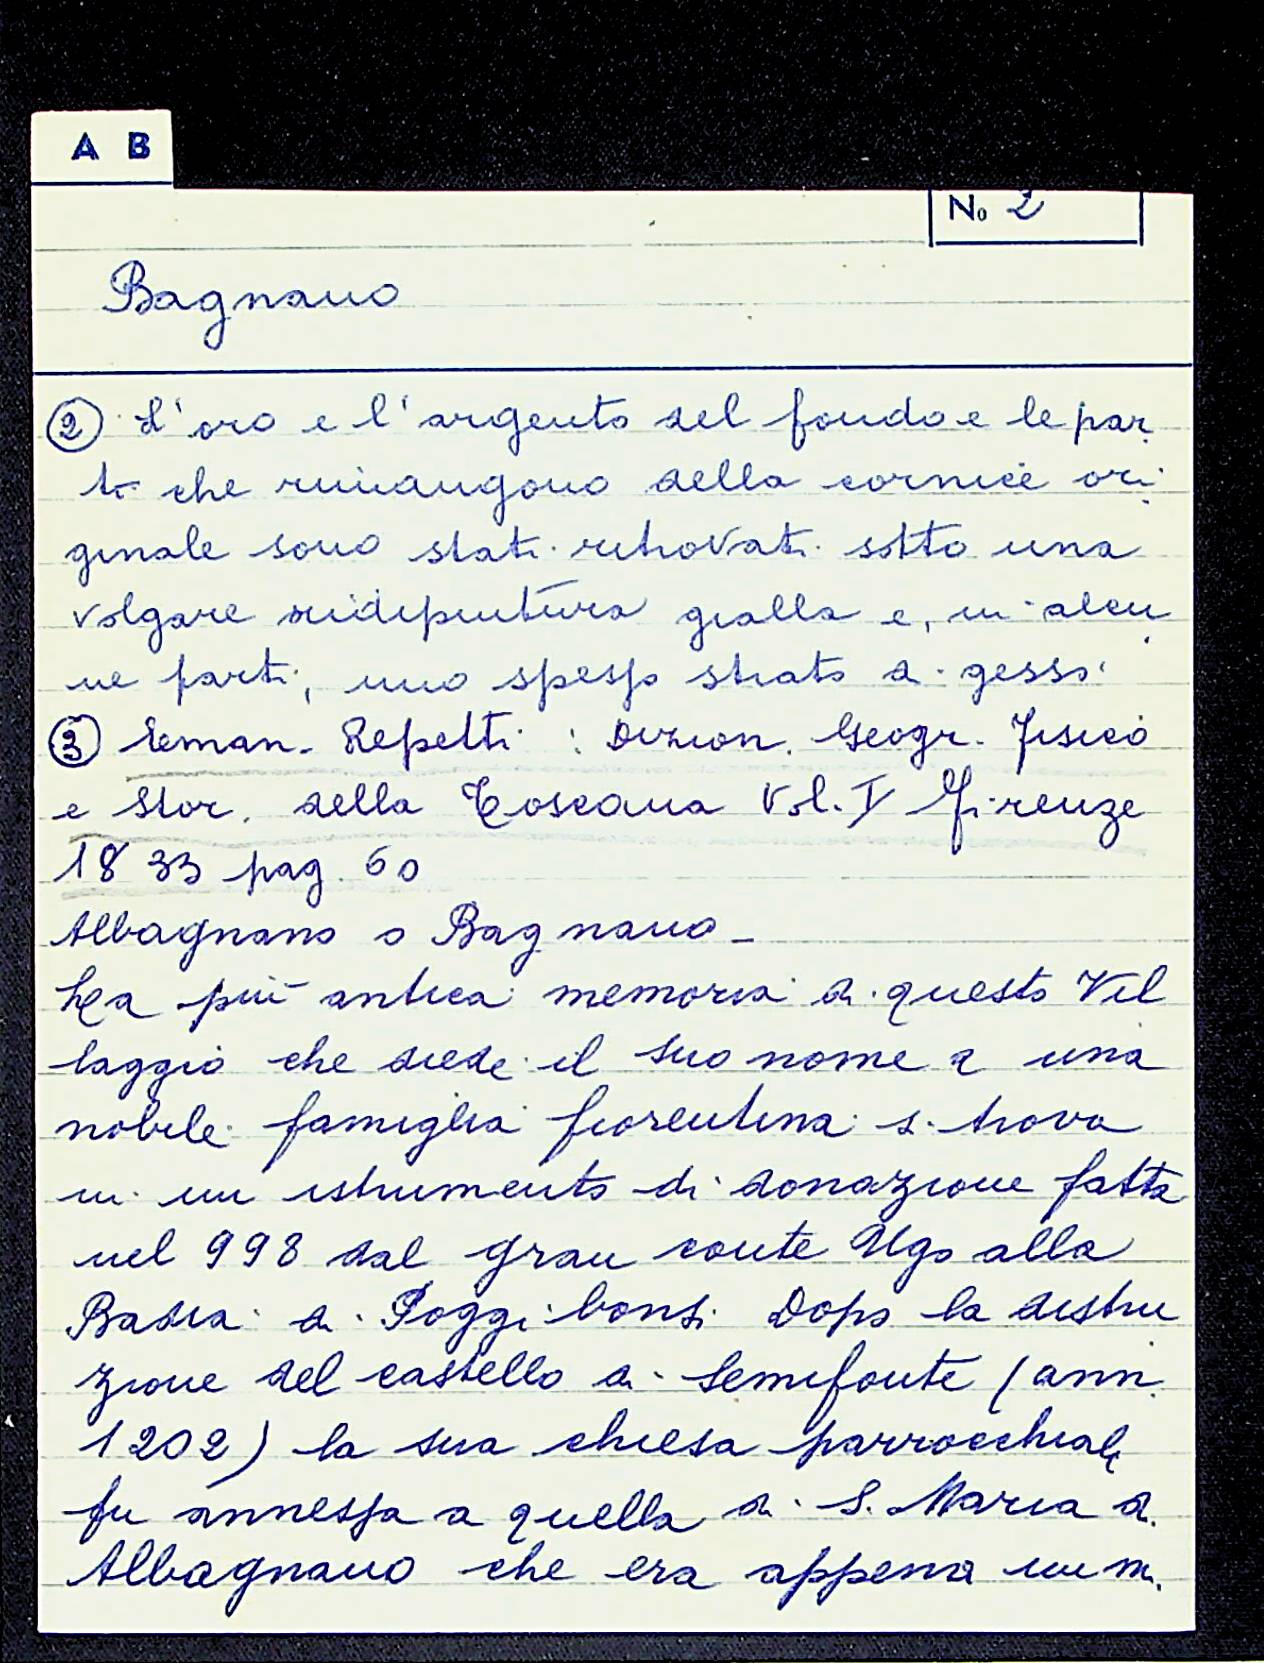 A B
No 2
Bagnano
2 L'oro e l'argento del fondo e le par
ti che rimangono della cornice ori
ginale sono stati ritrovati sotto una
volgare ridipintura gialla e, in alcu
ne parti, uno spesso strato di gesso.
3 Eman. Repetti: Dizion. Geogr. Fisico
e Stor. della Toscana Vol. I Firenze
1833 pag. 60
Albagnano o Bagnano -
La più antica memoria di questo Vil
laggio che diede il suo nome a una
nobile famiglia fiorentina si trova
in un istrumento di donazione fatta
nel 998 dal gran conte Ugo alla
Badia di Poggibonsi. Dopo la distru
zione del castello di Semifonte (ann.
1202) la sua chiesa parrocchiale
fu annessa a quella di S. Maria di
Albagnano che era appena un m.